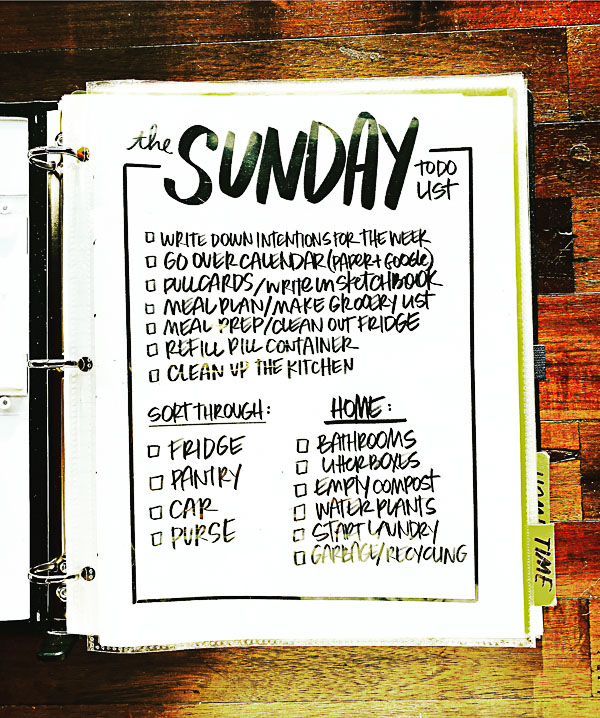 the SUNDAY TODO LIST
WRITE DOWN INTENTIONS FOR THE WEEK
GO OVER CALENDAR (PAPER + GOOGLE)
PULL CARDS/WRITE IN SKETCHBOOK
MEAL PLAN/MAKE GROCERY LIST
MEAL PREP/CLEAN OUT FRIDGE
REFILL PILL CONTAINER
CLEAN UP THE KITCHEN
SORT THROUGH:
FRIDGE
PANTRY
CAR
PURSE
HOME:
BATHROOMS
LITTERBOXES
EMPTY COMPOST
WATER PLANTS
START LAUNDRY
GARBAGE/RECYCLING
TIME